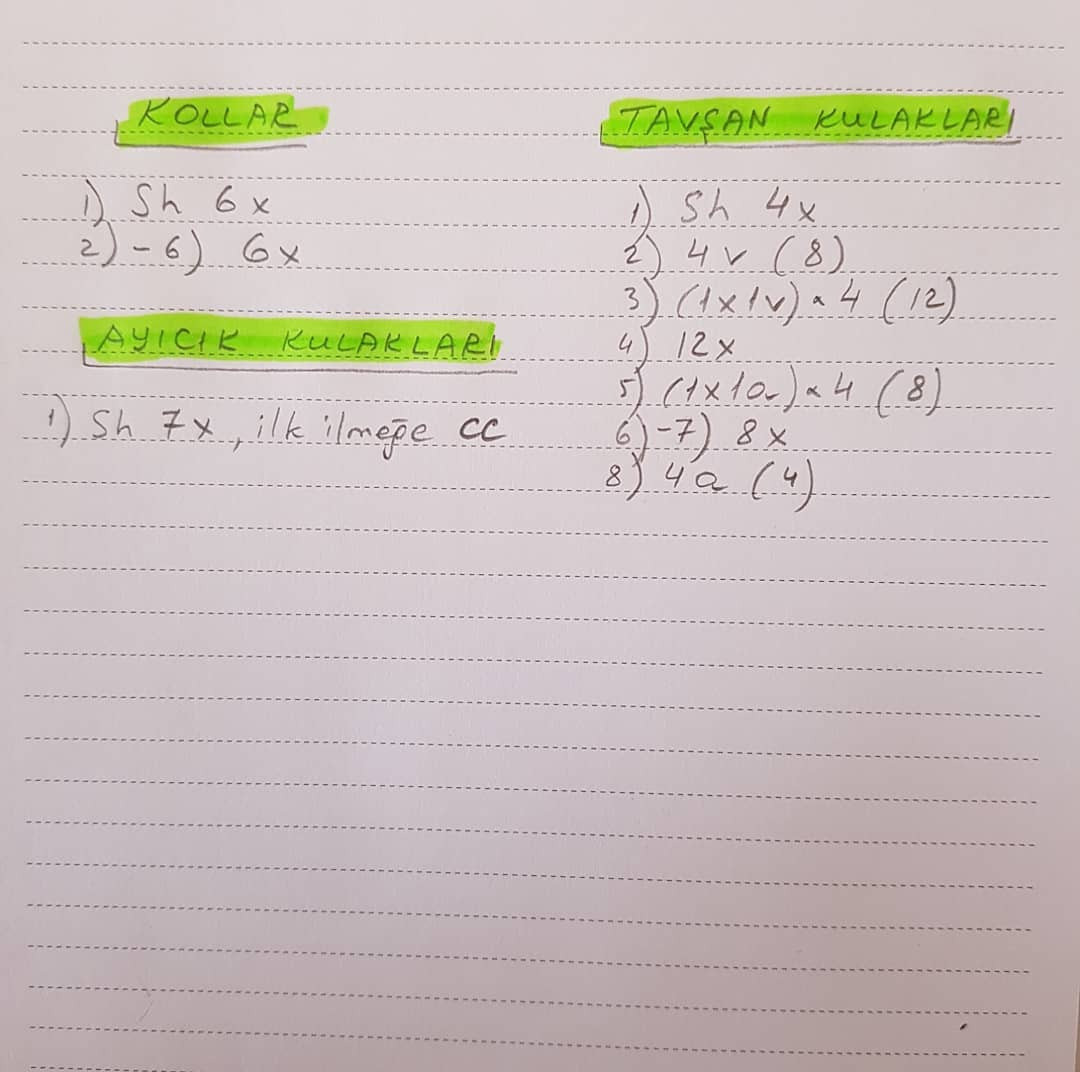 KOLLAR
1) Sh 6x
2)-6) 6x
AYICIK KULAKLARI
1) Sh 7x, ilk ilmeğe cc
TAVŞAN KULAKLARI
1) Sh 4x
2) 4v (8)
3) (1x1v)*4 (12)
4) 12x
5) (1x1a)*4 (8)
6)-7) 8x
8) 4a (4)